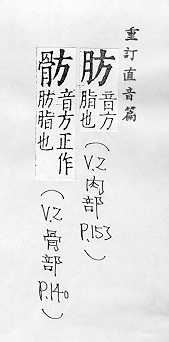 重訂直音篇
肪 音方
脂也
(V.2 肉部 P.153)
音方正作
肪脂也
(V.2 骨部 P.140)